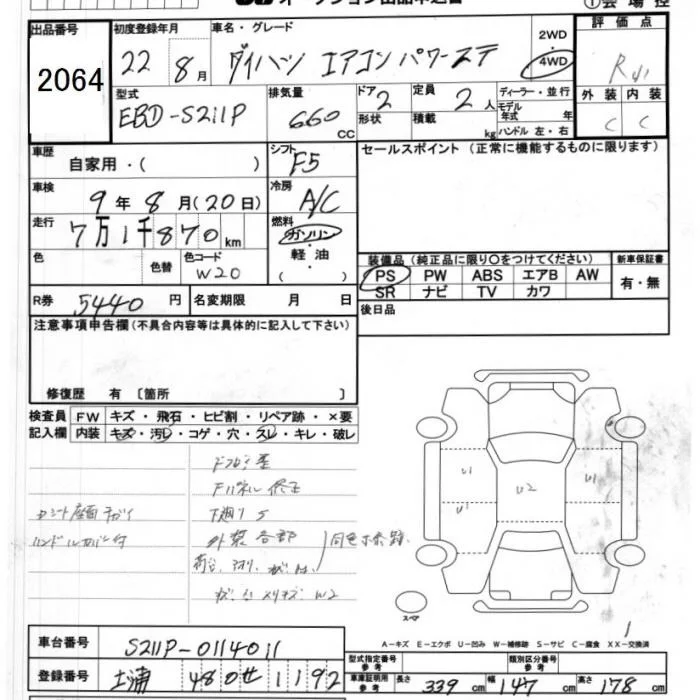 ①会場控
出品番号
2064
初度登録年月
22 8月
車名・グレード
ダイハツ エアコン パワーステ
2WD
4WD
評価点
R
外装 内装
C C
型式
EBD-S211P
排気量
660 CC
ドア 2
形状
定員 2人
積載 kg
ディーラー・並行
モデル年式 年式
ハンドル 左・右
車歴
自家用・( )
シフト
F5
セールスポイント (正常に機能するものに限ります)
車検
9年8月(20日)
冷房
A/C
走行
7万1千870km
燃料
ガソリン
軽油
( )
色
色替
色コード
W20
装備品 (純正品に限り〇をつけてください)
新車保証書
PS PW ABS エアB AW
SR ナビ TV カワ
有・無
R券 5440円
名変期限 月 日
後日品
注意事項申告欄 (不具合内容等は具体的に記入して下さい)
修復歴 有 [箇所 ]
検査員記入欄
FW キズ・飛石・ヒビ割・リペア跡・×要
内装 キズ・汚レ・コゲ・穴・スレ・キレ・破レ
Fパネル 修正
下廻りS
外装各部
ハンドルカバー付
U1
U1
U2
U1
スペア
A-キズ E-エクボ U-凹み W-補修跡 S-サビ C-腐食 XX-交換済
車台番号 S211P-0114011
登録番号 土浦 480せ1192
型式指定番号
類別区分番号
車庫証明用参考 長さ 339cm 幅 147cm 高さ 178cm